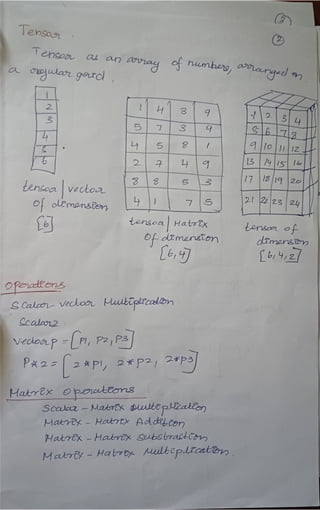 ②
②
Tensor.
Tensor as an array of numbers, arranged on
a regular grid.
1
2
3
4
5
6
1 4 3 9
5 7 3 9
4 5 8 1
2 7 4 9
8 8 5 3
4 1 7 5
1 2 3 4
5 6 7 8
9 10 11 12
13 14 15 16
17 18 19 20
21 22 23 24
tensor/vector
of dimension
[6]
tensor/Matrix
of dimension
[6,4]
tensor of
dimension
[6,4,2]
Operations
Scalar-vector Multiplication
Scalar 2
vector P = [P1, P2, P3]
P*2 = [2*P1, 2*P2, 2*P3]
Matrix Operations
Scalar-Matrix Multiplication
Matrix-Matrix Addition
Matrix-Matrix Substraction
Matrix-Matrix Multiplication.